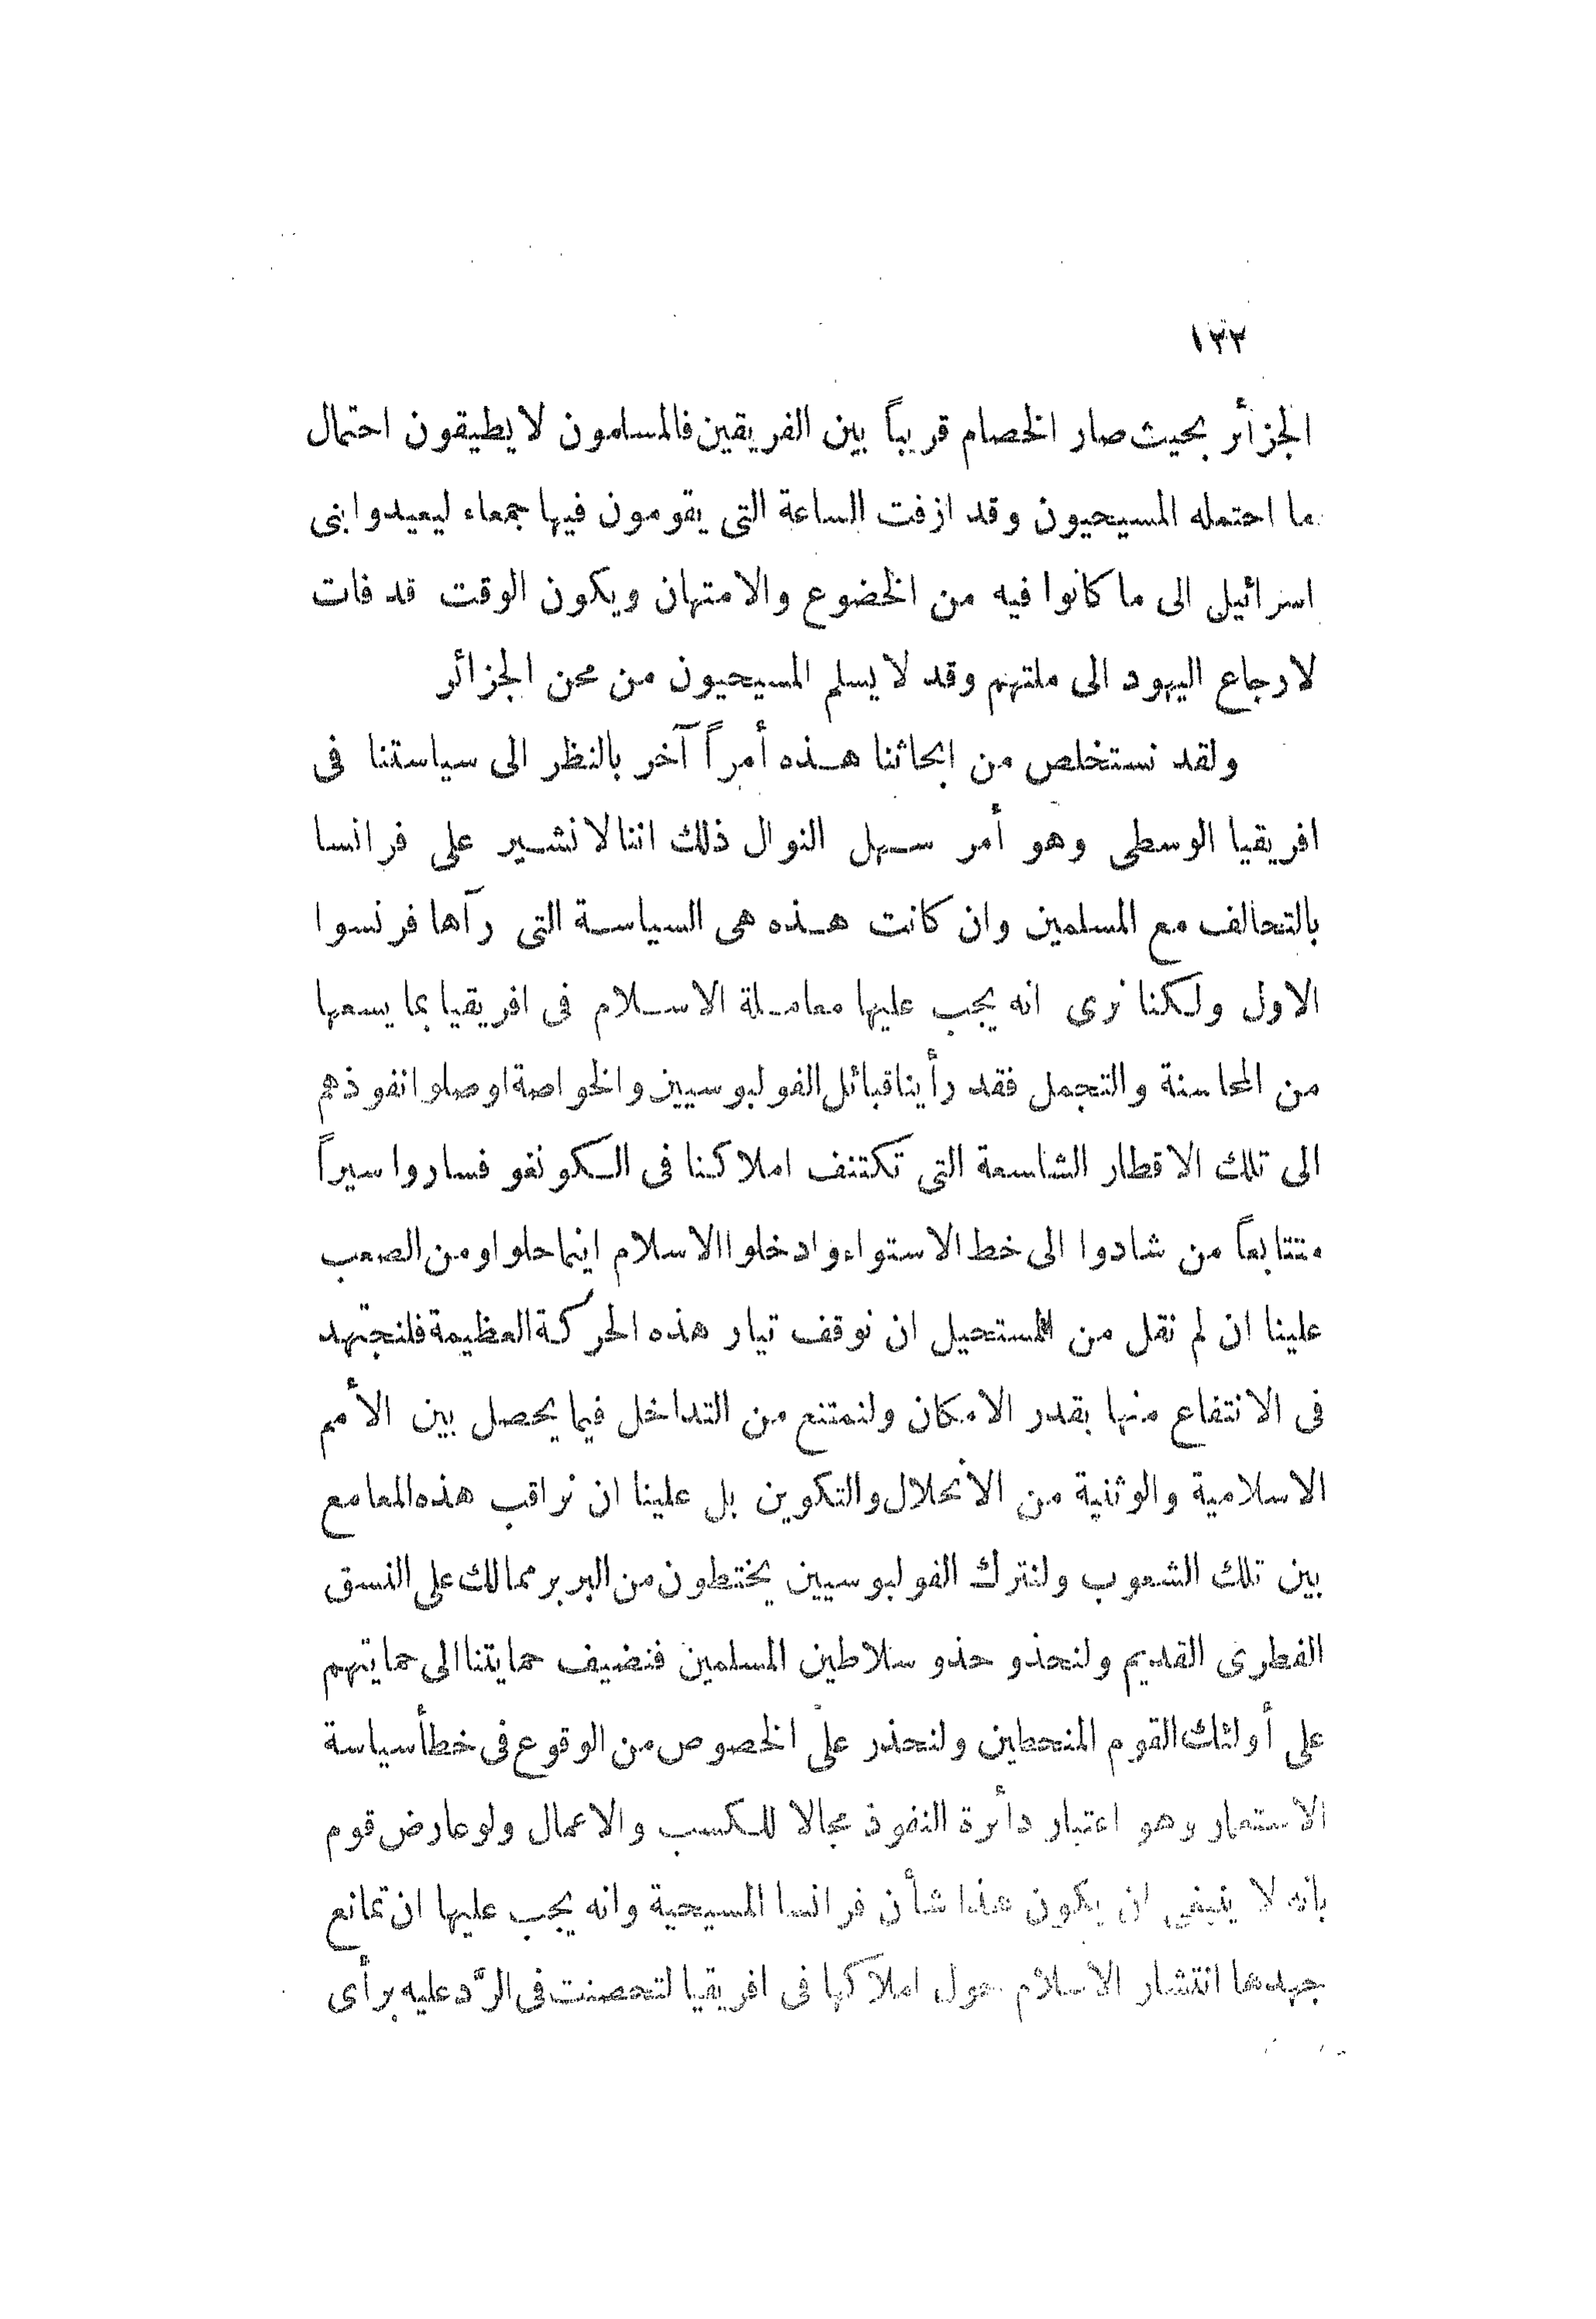 ١٣٢
الجزأئر بحيث صار الخصام قريباً بين الفريقين فالمسلمون لا يطيقون احتمال
ما احتمله المسيحيون وقد ازفت الساعة التى يقومون فيها جمعاء ليعيدوا بنى
اسرائيل الى ما كانوا فيه من الخضوع والامتهان ويكون الوقت قد فات
لارجاع اليهود الى ملتهم وقد لا يسلم المسيحيون من محن الجزائر
ولقد نستخلص من ابحاثنا هـذه أمراً آخر بالنظر الى سياستنا فى
افريقيا الوسطى وهو أمر سـهل النوال ذلك اننا لا نشـير على فرانسا
بالتحالف مع المسلمين وان كانت هـذه هى السياسـة التى رآها فرنسوا
الاول ولكنا نرى انه يجب عليها معامـلة الاسـلام فى افريقيا بما يسعها
من المحاسنة والتجمل فقد رأينا قبائل الفولبوسيين والخواصة اوصلوا نفوذهم
الى تلك الاقطار الشاسعة التى تكتنف املاكنا فى الـكونغو فساروا سيراً
متتابعاً من شادوا الى خط الاستواء وادخلوا الاسلام اينما حلوا ومن الصعب
علينا ان لم نقل من المستحيل ان نوقف تيار هذه الحركة العظيمة فلنجتهد
فى الانتفاع منها بقدر الامكان ولنمتنع من التداخل فيما يحصل بين الأمم
الاسلامية والوثنية من الانحلال والتكوين بل علينا ان نراقب هذه المعامع
بين تلك الشعوب ولنترك الفولبوسيين يختطون من البربر ممالك على النسق
الفطرى القديم ولنحذو حذو سلاطين المسلمين فنضيف حمايتنا الى حمايتهم
على أولئك القوم المنحطين ولنحذر على الخصوص من الوقوع فى خطأ سياسة
الاستعمار وهو اعتبار دأئرة النفوذ مجالا للـكسب والاعمال ولو عارض قوم
بانه لا ينبغى ان يكون هذا شأن فرانسا المسيحية وانه يجب عليها ان تمانع
جهدها انتشار الاسلام حول املاكها فى افريقيا لتحصنت فى الرَّد عليه برأى